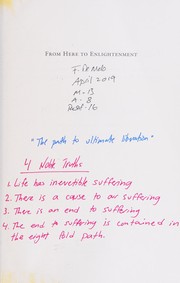 FROM HERE TO ENLIGHTENMENT
April 2019
M-13
A-8
"The path to ultimate liberation"
4 Noble Truths
1. Life has inevetible suffering
2. There is a cause to our suffering
3. There is an end to suffering
4. The end to suffering is contained in
the eight fold path.